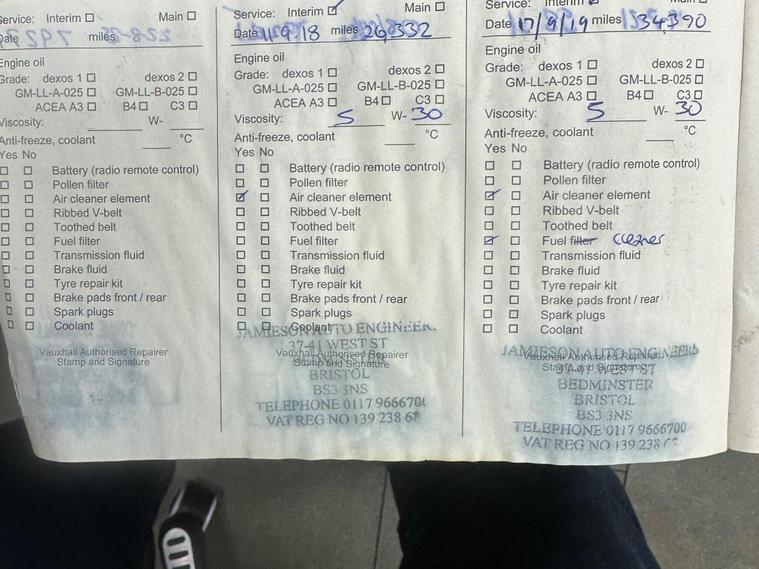 Service: Interim ☐ Main ☐
Date miles
Engine oil
Grade: dexos 1 ☐ dexos 2 ☐
GM-LL-A-025 ☐ GM-LL-B-025 ☐
ACEA A3 ☐ B4 ☐ C3 ☐
Viscosity: W-
Anti-freeze, coolant °C
Yes No
Battery (radio remote control)
Pollen filter
Air cleaner element
Ribbed V-belt
Toothed belt
Fuel filter
Transmission fluid
Brake fluid
Tyre repair kit
Brake pads front / rear
Spark plugs
Coolant
Vauxhall Authorised Repairer
Stamp and Signature
Service: Interim ☑ Main ☐
Date 11.9.18 miles 26332
Engine oil
Grade: dexos 1 ☐ dexos 2 ☐
GM-LL-A-025 ☐ GM-LL-B-025 ☐
ACEA A3 ☐ B4 ☐ C3 ☐
Viscosity: 5 W- 30
Anti-freeze, coolant °C
Yes No
Battery (radio remote control)
Pollen filter
Air cleaner element
Ribbed V-belt
Toothed belt
Fuel filter
Transmission fluid
Brake fluid
Tyre repair kit
Brake pads front / rear
Spark plugs
Coolant
JAMIESON AUTO ENGINEER
37-41 WEST ST
Vauxhall Authorised Repairer
Stamp and Signature
BRISTOL
BS3 3NS
TELEPHONE 0117 966670
VAT REG NO 139 238 6
Service: Interim ☑ Main ☐
Date 17/9/19 miles 34390
Engine oil
Grade: dexos 1 ☐ dexos 2 ☐
GM-LL-A-025 ☐ GM-LL-B-025 ☐
ACEA A3 ☐ B4 ☐ C3 ☐
Viscosity: 5 W- 30
Anti-freeze, coolant °C
Yes No
Battery (radio remote control)
Pollen filter
Air cleaner element
Ribbed V-belt
Toothed belt
Fuel filter cleaner
Transmission fluid
Brake fluid
Tyre repair kit
Brake pads front / rear
Spark plugs
Coolant
JAMIESON AUTO ENGINEERS
Vauxhall Authorised Repairer
Stamp and Signature
BEDMINSTER
BRISTOL
BS3 3NS
TELEPHONE 0117 9666700
VAT REG NO 139 238